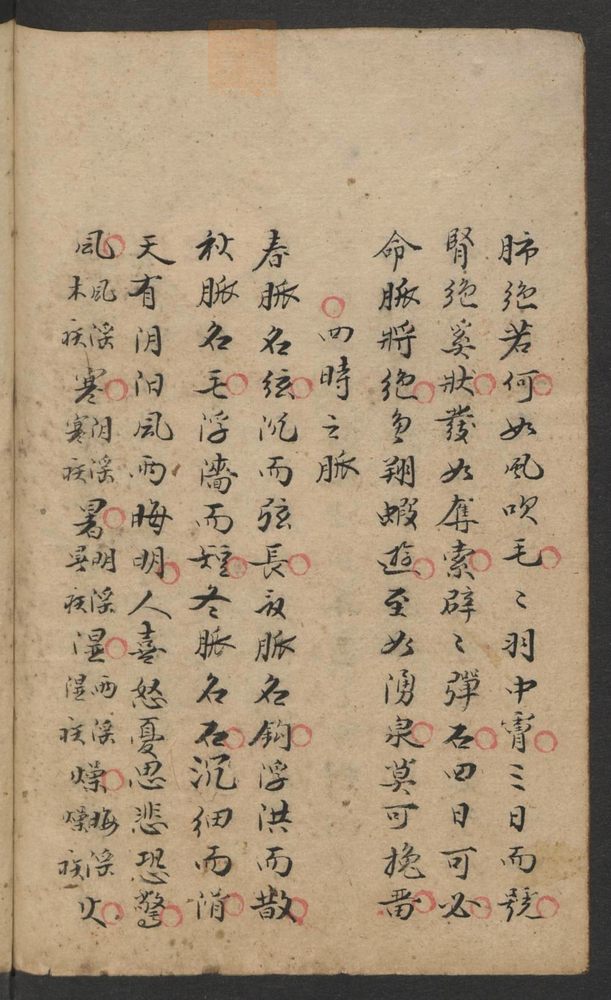 肺绝若何如風吹毛〻羽中膚三日而號
腎绝奚狀發如奪索辟〻彈石四日可必
命脈將绝魚翔蝦遊至如湧泉莫可挽畱
四時之脈
春脈名弦沉而弦長夏脈名鈎浮洪而散
秋脈名毛浮濇而短冬脈名石沉细而滑
天有阴阳風雨晦明人喜怒憂思悲恐驚
風風淫末疾寒阴淫寒疾暑明淫暑疾湿雨淫湿疾燥晦淫燥疾火